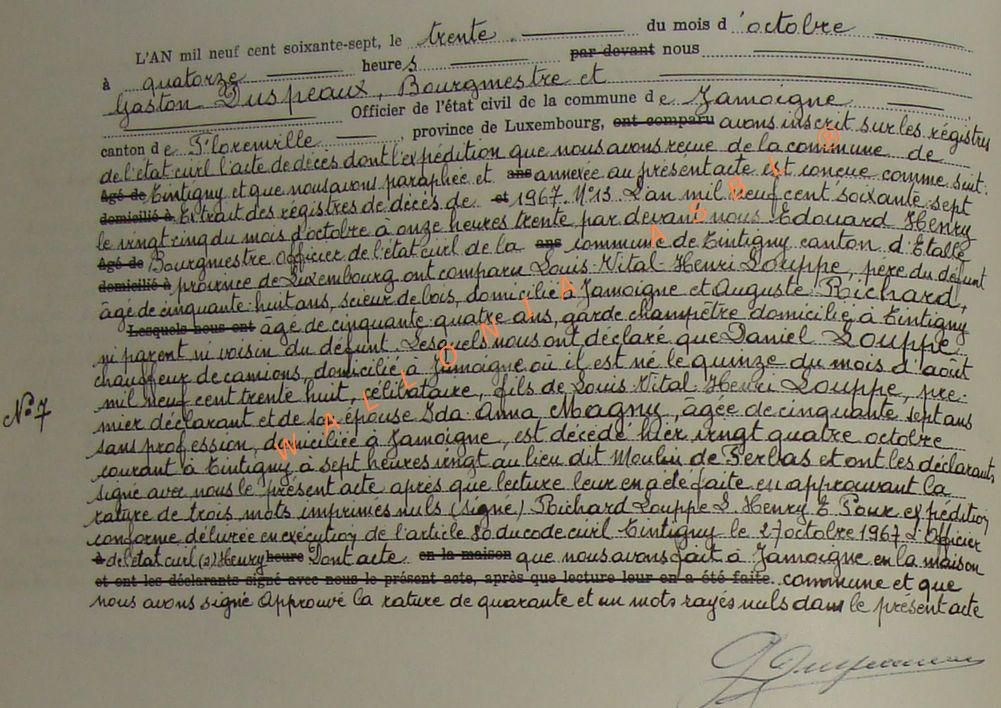 L'AN mil neuf cent soixante-sept, le trente du mois d'octobre
à quatorze heures par devant nous
Gaston Duspeaux, Bourgmestre et
Officier de l'état civil de la commune de Jamoigne
canton de Florenville, province de Luxembourg, ont comparu avons inscrit sur les régistres
de l'état-civil l'acte de décès dont l'expédition que nous avons reçue de la commune de
Agé de Tintigny et que nous avons paraphée et ans annexée au présent acte est conçue comme suit:
domicilié à Extrait des régistres de décès de et 1967. N°13. L'an mil neuf cent soixante sept
le vingt cinq du mois d'octobre à onze heures trente par devant nous Edouard Henry
Agé de Bourgmestre Officier de l'état civil de la ans commune de Tintigny canton d'Etalle
domicilié à province de Luxembourg ont comparu Louis-Vital-Henri Louppe, père du défunt
âgé de cinquante-huit ans, scieur de bois, domicilié à Jamoigne et Auguste Richard,
Lesquels nous ont âgé de cinquante-quatre ans, garde champêtre domicilié à Tintigny
ni parent ni voisin du défunt. Lesquels nous ont déclaré que Daniel Louppe
chauffeur de camions, domicilié à Jamoigne où il est né le quinze du mois d'août
mil neuf cent trente huit, célibataire, fils de Louis-Vital-Henri Louppe, pre-
N° 7
mier déclarant et de son épouse Ida-Anna Magny, âgée de cinquante sept ans
sans profession, domiciliée à Jamoigne, est décédé hier vingt quatre octobre
courant à Tintigny à sept heures vingt au lieu dit Moulin de Perbas et ont les déclarants
signé avec nous le présent acte après que lecture leur en a été faite en approuvant la
rature de trois mots imprimés nuls (signé) Richard Louppe L. Henry E Pour expédition
conforme délivrée en exécution de l'article 80 du code civil Tintigny le 27 octobre 1967 L'Officier
à de l'état civil (s) Henry heure Dont acte en la maison que nous avons fait à Jamoigne en la maison
et ont les déclarants signé avec nous le présent acte, après que lecture leur en a été faite. commune et que
nous avons signé Approuvé la rature de quarante et un mots rayés nuls dans le présent acte
WALLONIA ASBL ®